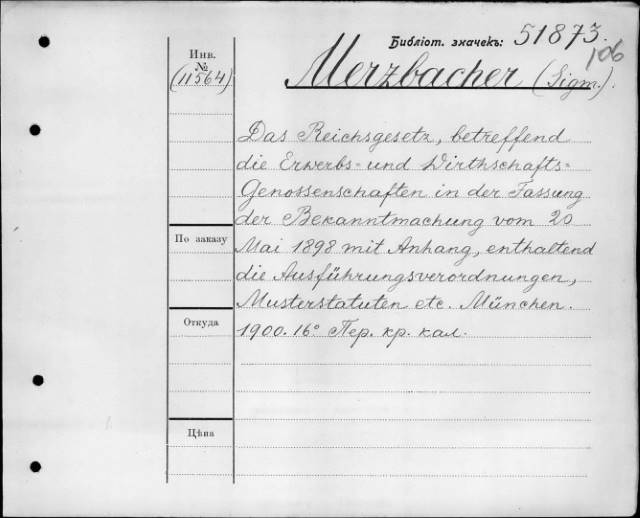 Библіот. значекъ: 51873.
106
Инв.
№
(11564)
Merzbacher (Sigm.).
Das Reichsgesetz, betreffend
die Erwerbs- und Wirthschafts-
Genossenschaften in der Fassung
der Bekanntmachung vom 20
По заказу
Mai 1898 mit Anhang, enthaltend
die Ausführungsverordnungen,
Musterstatuten etc. München.
Откуда
1900. 16° Пер. кр. кал.
Цѣна